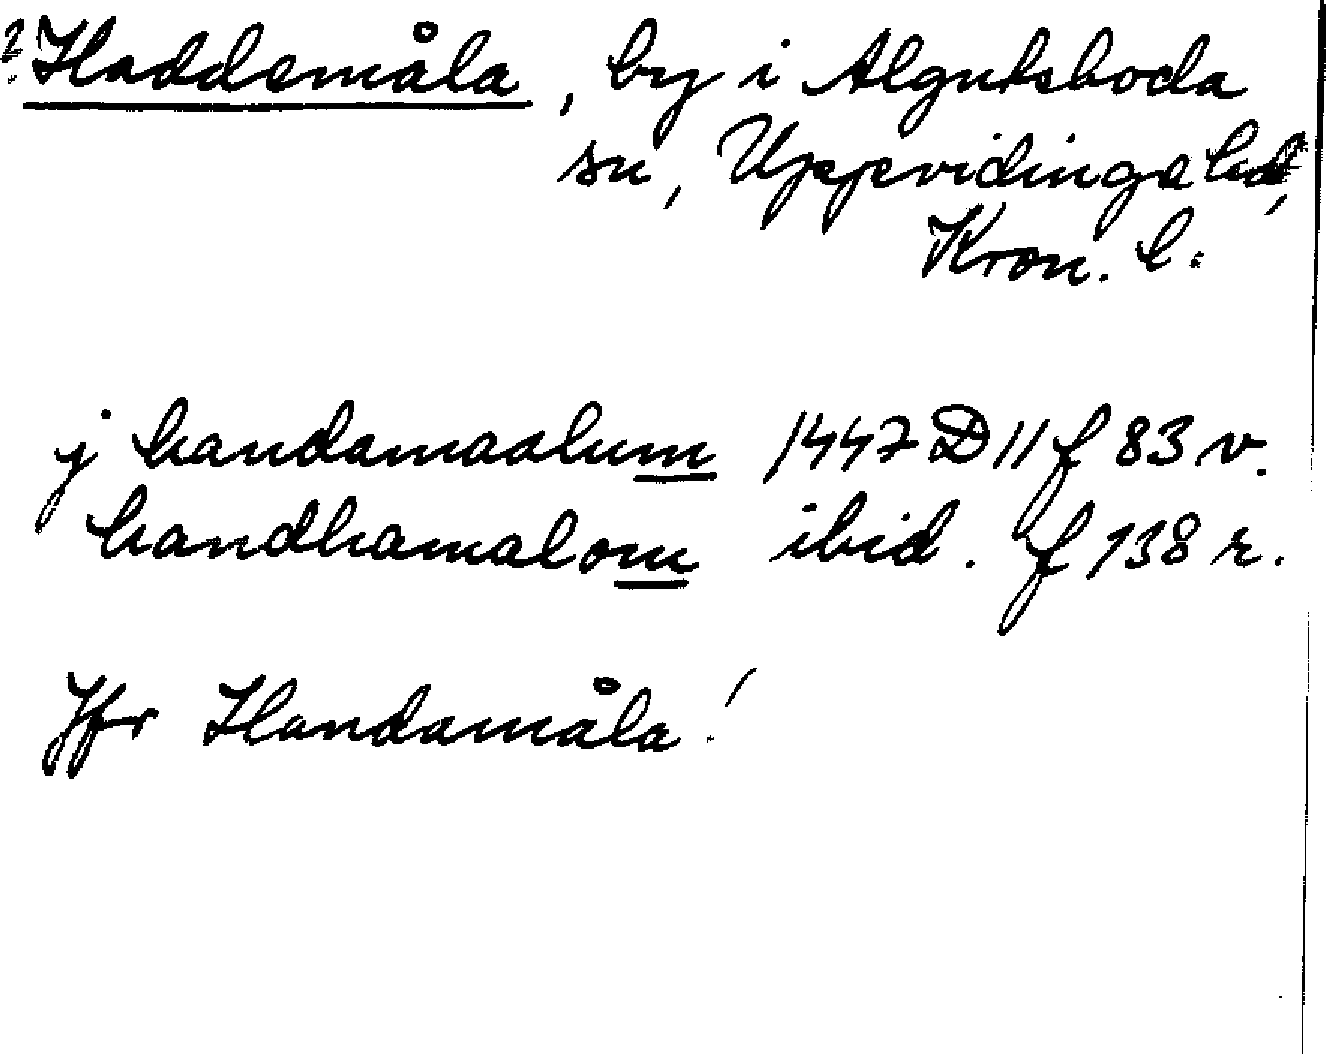 ? Haddemåla, by i Algutsboda
sn, Uppvidinge hd,
Kron. l.
j handamaalum 1447 D 11 f 83 v.
handhamalom ibid. f 138 r.
Jfr Handamåla!